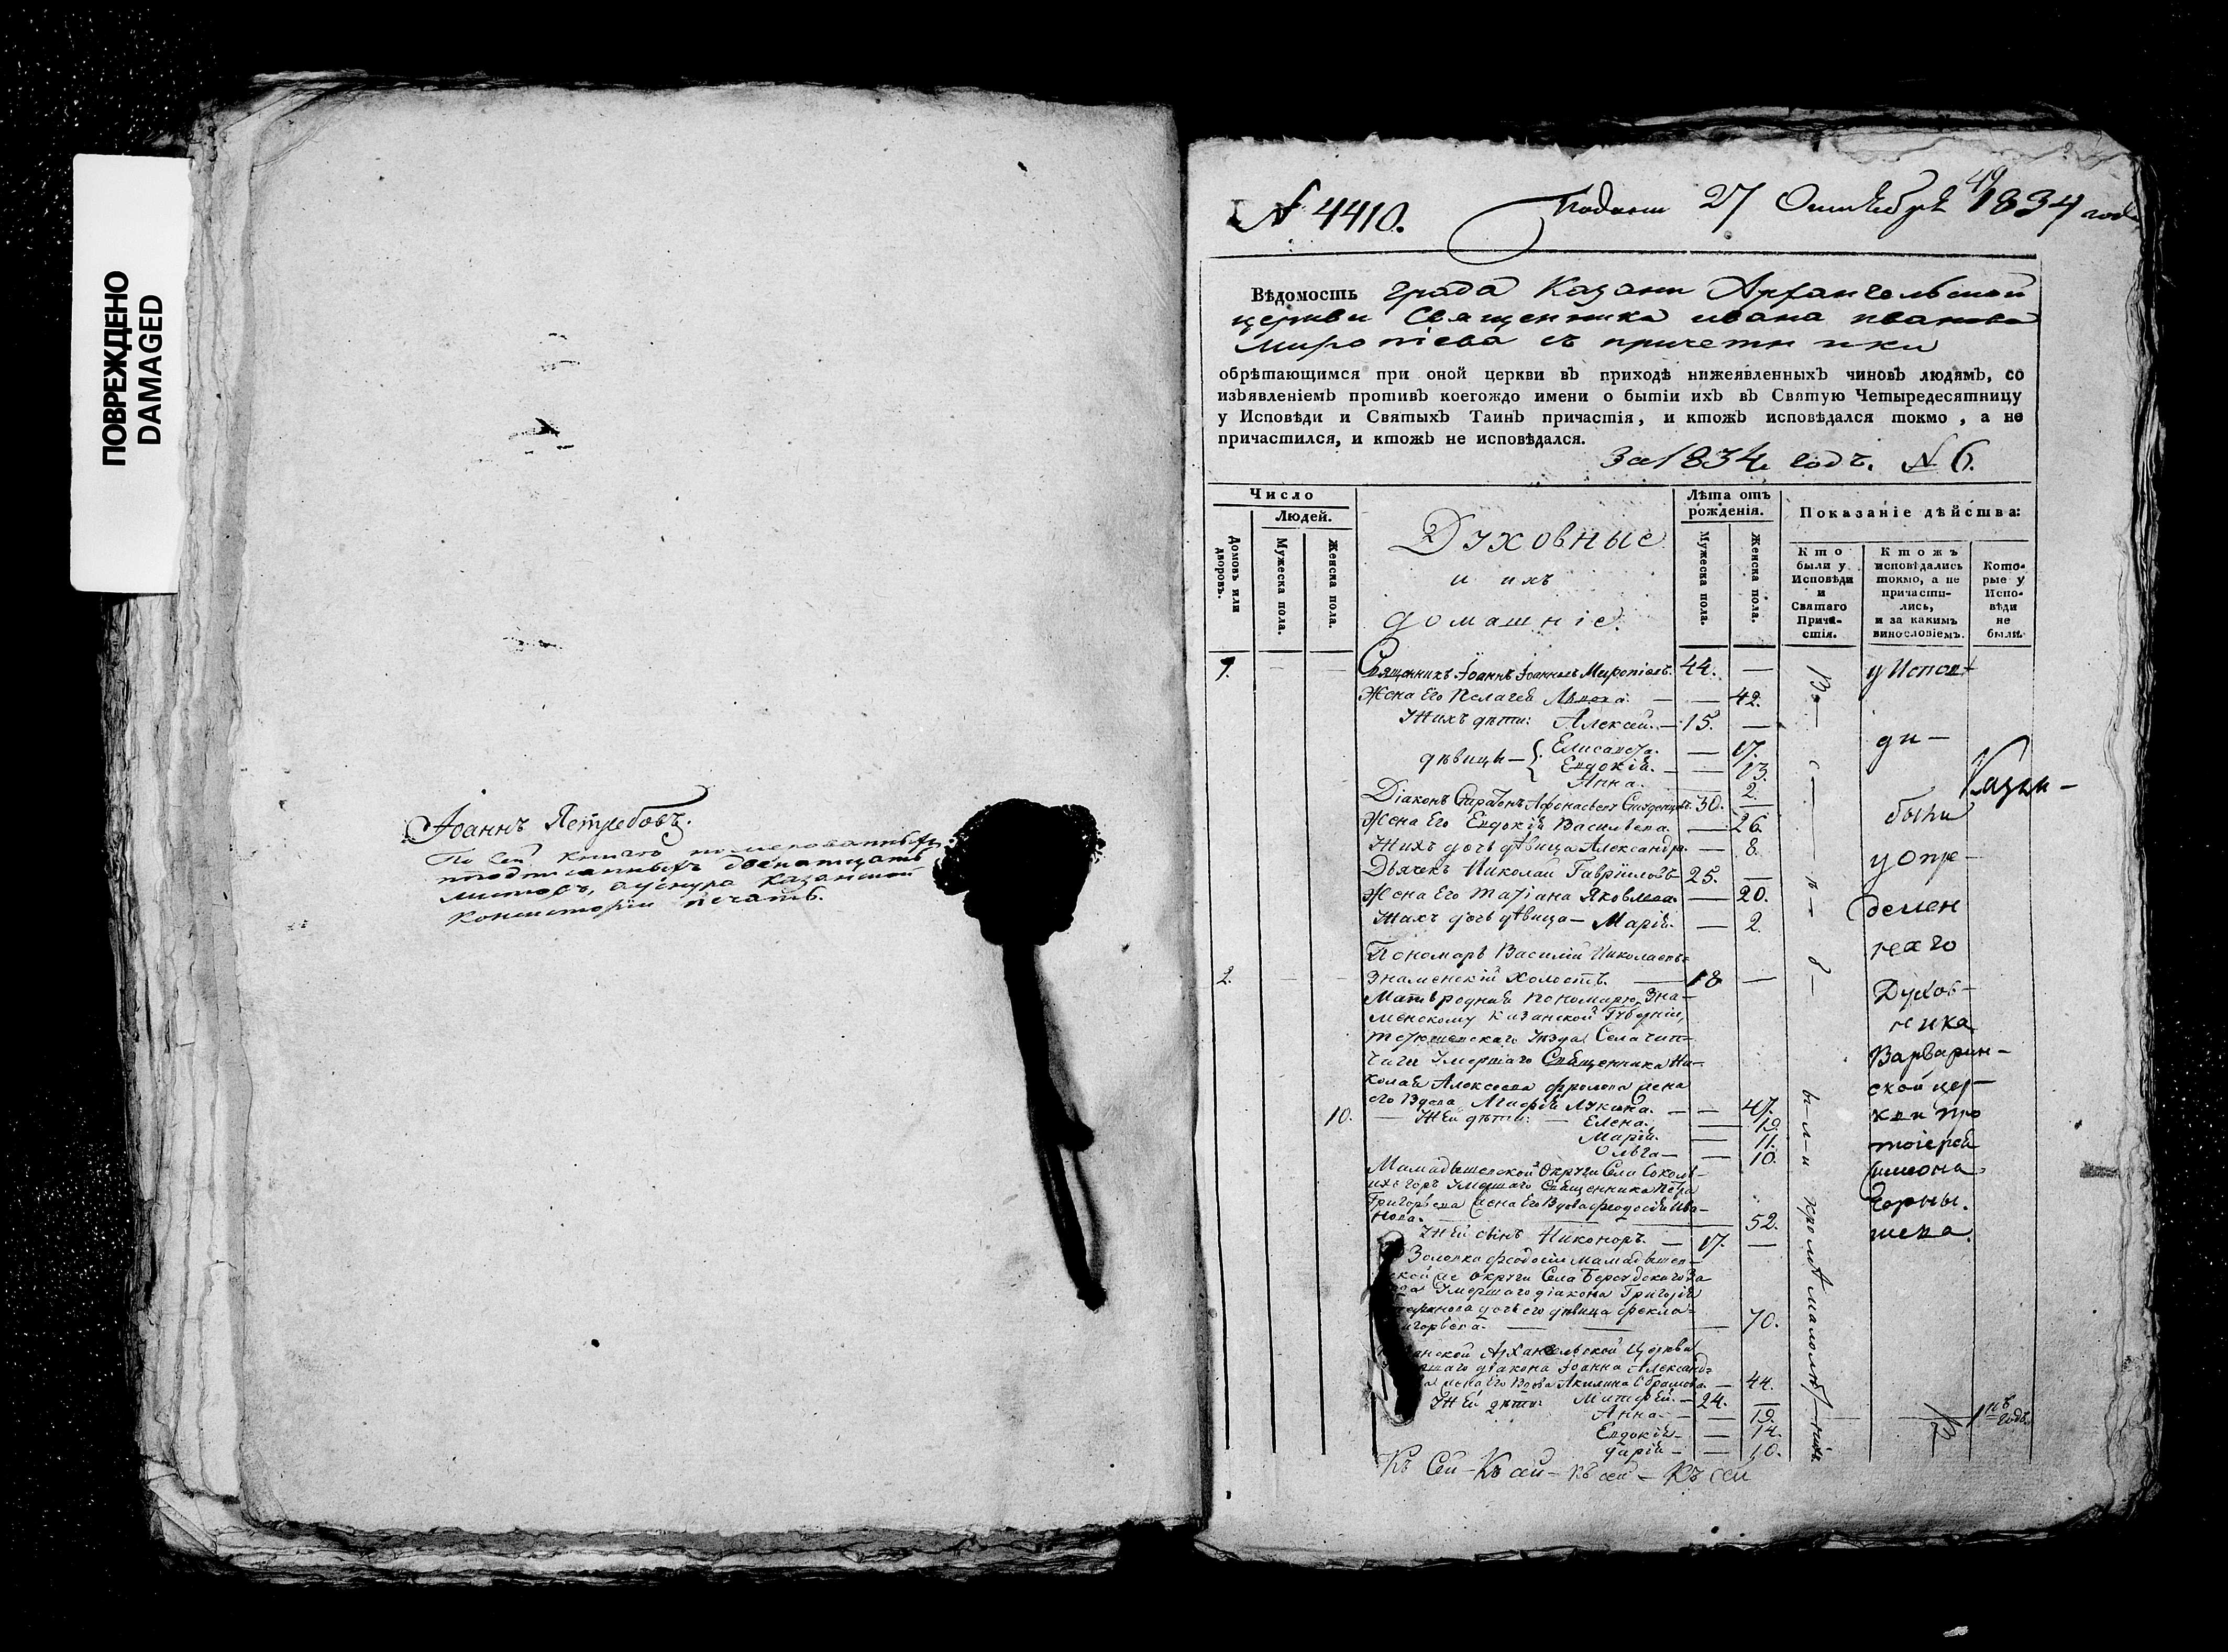 ПОВРЕЖДЕНО
DAMAGED
Іоаннъ Ястребовъ.
По сей книгѣ
листовъ, Казанской
Консисторіи печать.
49
№ 4410.
Подана 27 Октября 1834 года
Вѣдомость града Казани Архангельской
церкви Священника ивана иванова
миропіева съ причетники
обрѣтающимся при оной церкви въ приходѣ нижеявленныхъ чиновъ людямъ, со
изъявленіемъ противъ коегождо имени о бытіи ихъ въ Святую Четыредесятницу
у Исповѣди и Святыхъ Таинъ причастія, и ктожъ исповѣдался токмо, а не
причастился, и ктожъ не исповѣдался.
За 1834 годъ. № 6.
Число
Людей.
Домовъ или дворовъ.
Мужеска пола.
Женска пола.
Духовные
и ихъ
домашніе
Лѣта отъ рожденія.
Мужеска пола.
Женска пола.
Показаніе дѣйства:
Кто были у Исповѣди и Святаго Прича-стія.
Ктожъ исповѣдались токмо, а не причасти-лись, и за какимъ винословіемъ.
Кото-рые у Испо-вѣди не были.
1. Священникъ Іоаннъ Іоанновъ Миропіевъ. 44. —
Жена Его Пелагея — 42.
У нихъ дѣти: Алексей. — 15. —
дѣвицы — Елисавета. — 17.
Евдокія. — 13.
Анна. 2.
Діаконъ Афонасьевъ 30. —
Жена Его Евдокія Васильева. — 26.
У нихъ дочь дѣвица Александра. — 8.
Дьячекъ Николай Гавріиловъ 25. —
Жена Его Татіана Яковлева. — 20.
У нихъ дочь дѣвица — Марія. — 2.
Пономарь Василій Николаевъ
2. Знаменскій Холостъ. — 18 —
Мать родная пономарю Зна-
менскому Казанской Губерніи,
Тетюшскаго Уѣзда Села
Умершаго Священника Ни-
колая Алексеева Фролова жена
10. его Вдова Лукина. — — 47.
У ней дѣти: — Елена. — 19.
Марія. — 11.
Ольга — — 10.
Мамадышевской Округи Села
Умершаго Священника Петра
Григорьева жена Его Вдова Феодосія Ива-
нова. — 52.
У ней сынъ Никоноръ. — 17. —
Золовка Феодосіи Мамадышев-
ской же Округи Села
Умершаго діакона Григорія
дочь его дѣвица Фекла
— 70.
Архангельской Церкви
діакона Іоанна Александ-
жена Его Вдова Акилина Абрамова. — 44.
У ней дѣти: — 24. —
Анна. — — 19.
Евдокія — — 14.
Дарія — — 10.
Въ с п о в ѣ
были кромѣ малолѣтныхъ
у Испов
ди —
были
у опре-
делен
наго
Духов-
ника
Варварин-
ской цер-
кви про
тоіерея
Симеона
Казан-
1 годъ
Къ Сей — Къ сей — Къ сей — Къ сей